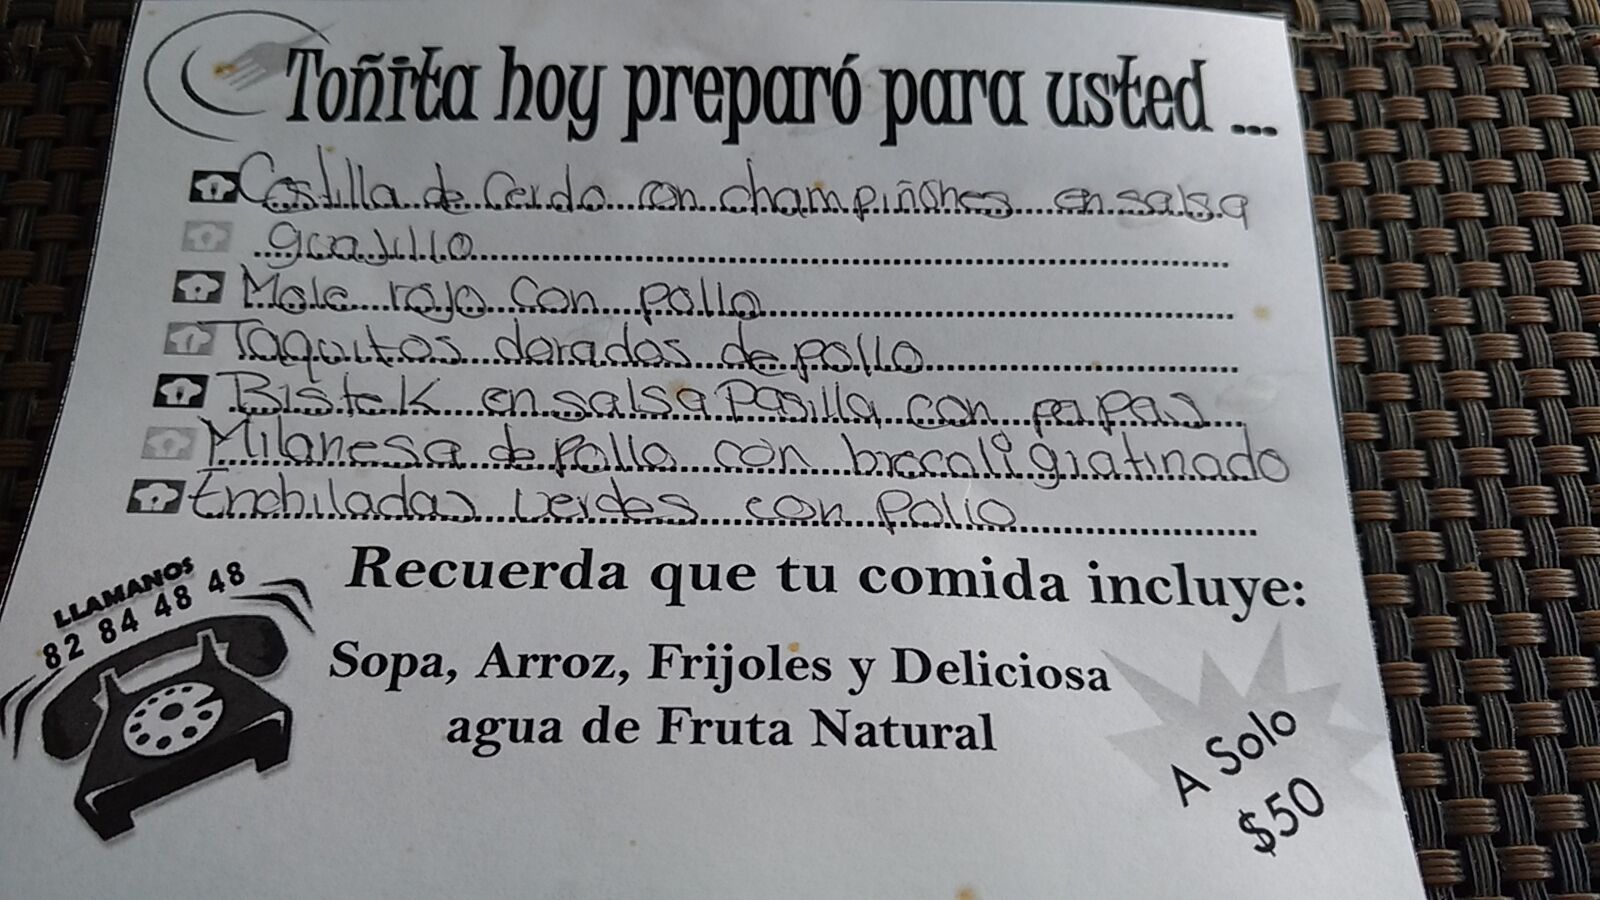 Toñita hoy preparó para usted ...
Costilla de Cerdo con champiñones en salsa
guajillo
Mole rojo con pollo
Taquitos dorados de pollo
Bistek en salsa Pasilla con papas
Milanesa de pollo con brocoli gratinado
Enchiladas verdes con pollo
Recuerda que tu comida incluye:
LLAMANOS
82 84 48 48
Sopa, Arroz, Frijoles y Deliciosa
agua de Fruta Natural
A Solo
$50